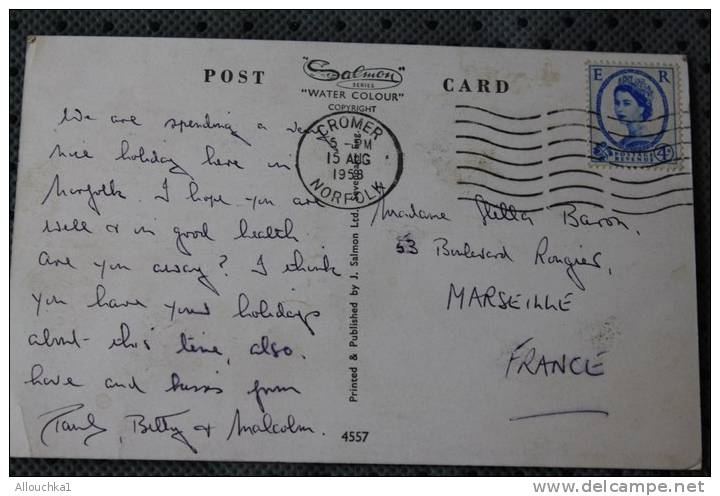 POST
"Salmon
SERIES
"WATER COLOUR"
COPYRIGHT
CARD
E R
POSTAGE
REVENUE
4D
CROMER
5 - PM
15 AUG
1958
NORFOLK
We are spending a very
nice holiday here in
Norfolk. I hope you are
well & in good health
Are you away? I think
you have your holidays
about this time, also.
love and kisses from
Paul, Betty & Malcolm.
Printed & Published by J. Salmon Ltd., Sevenoaks, Eng.
4557
Madame Stella Baron,
53 Boulevard Rougier,
MARSEILLE
FRANCE
Allouchka1
delcampe.net